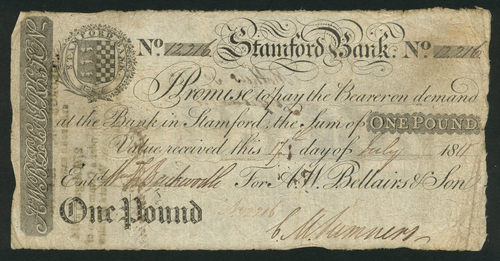 STAMFORD BANK
No. 12,216 Stamford Bank. No. 12,216
I Promise to pay the Bearer on demand
at the Bank in Stamford, the Sum of ONE POUND
Value received this 17 day of July 1811
Entd. For A. W. Bellairs & Son
One Pound